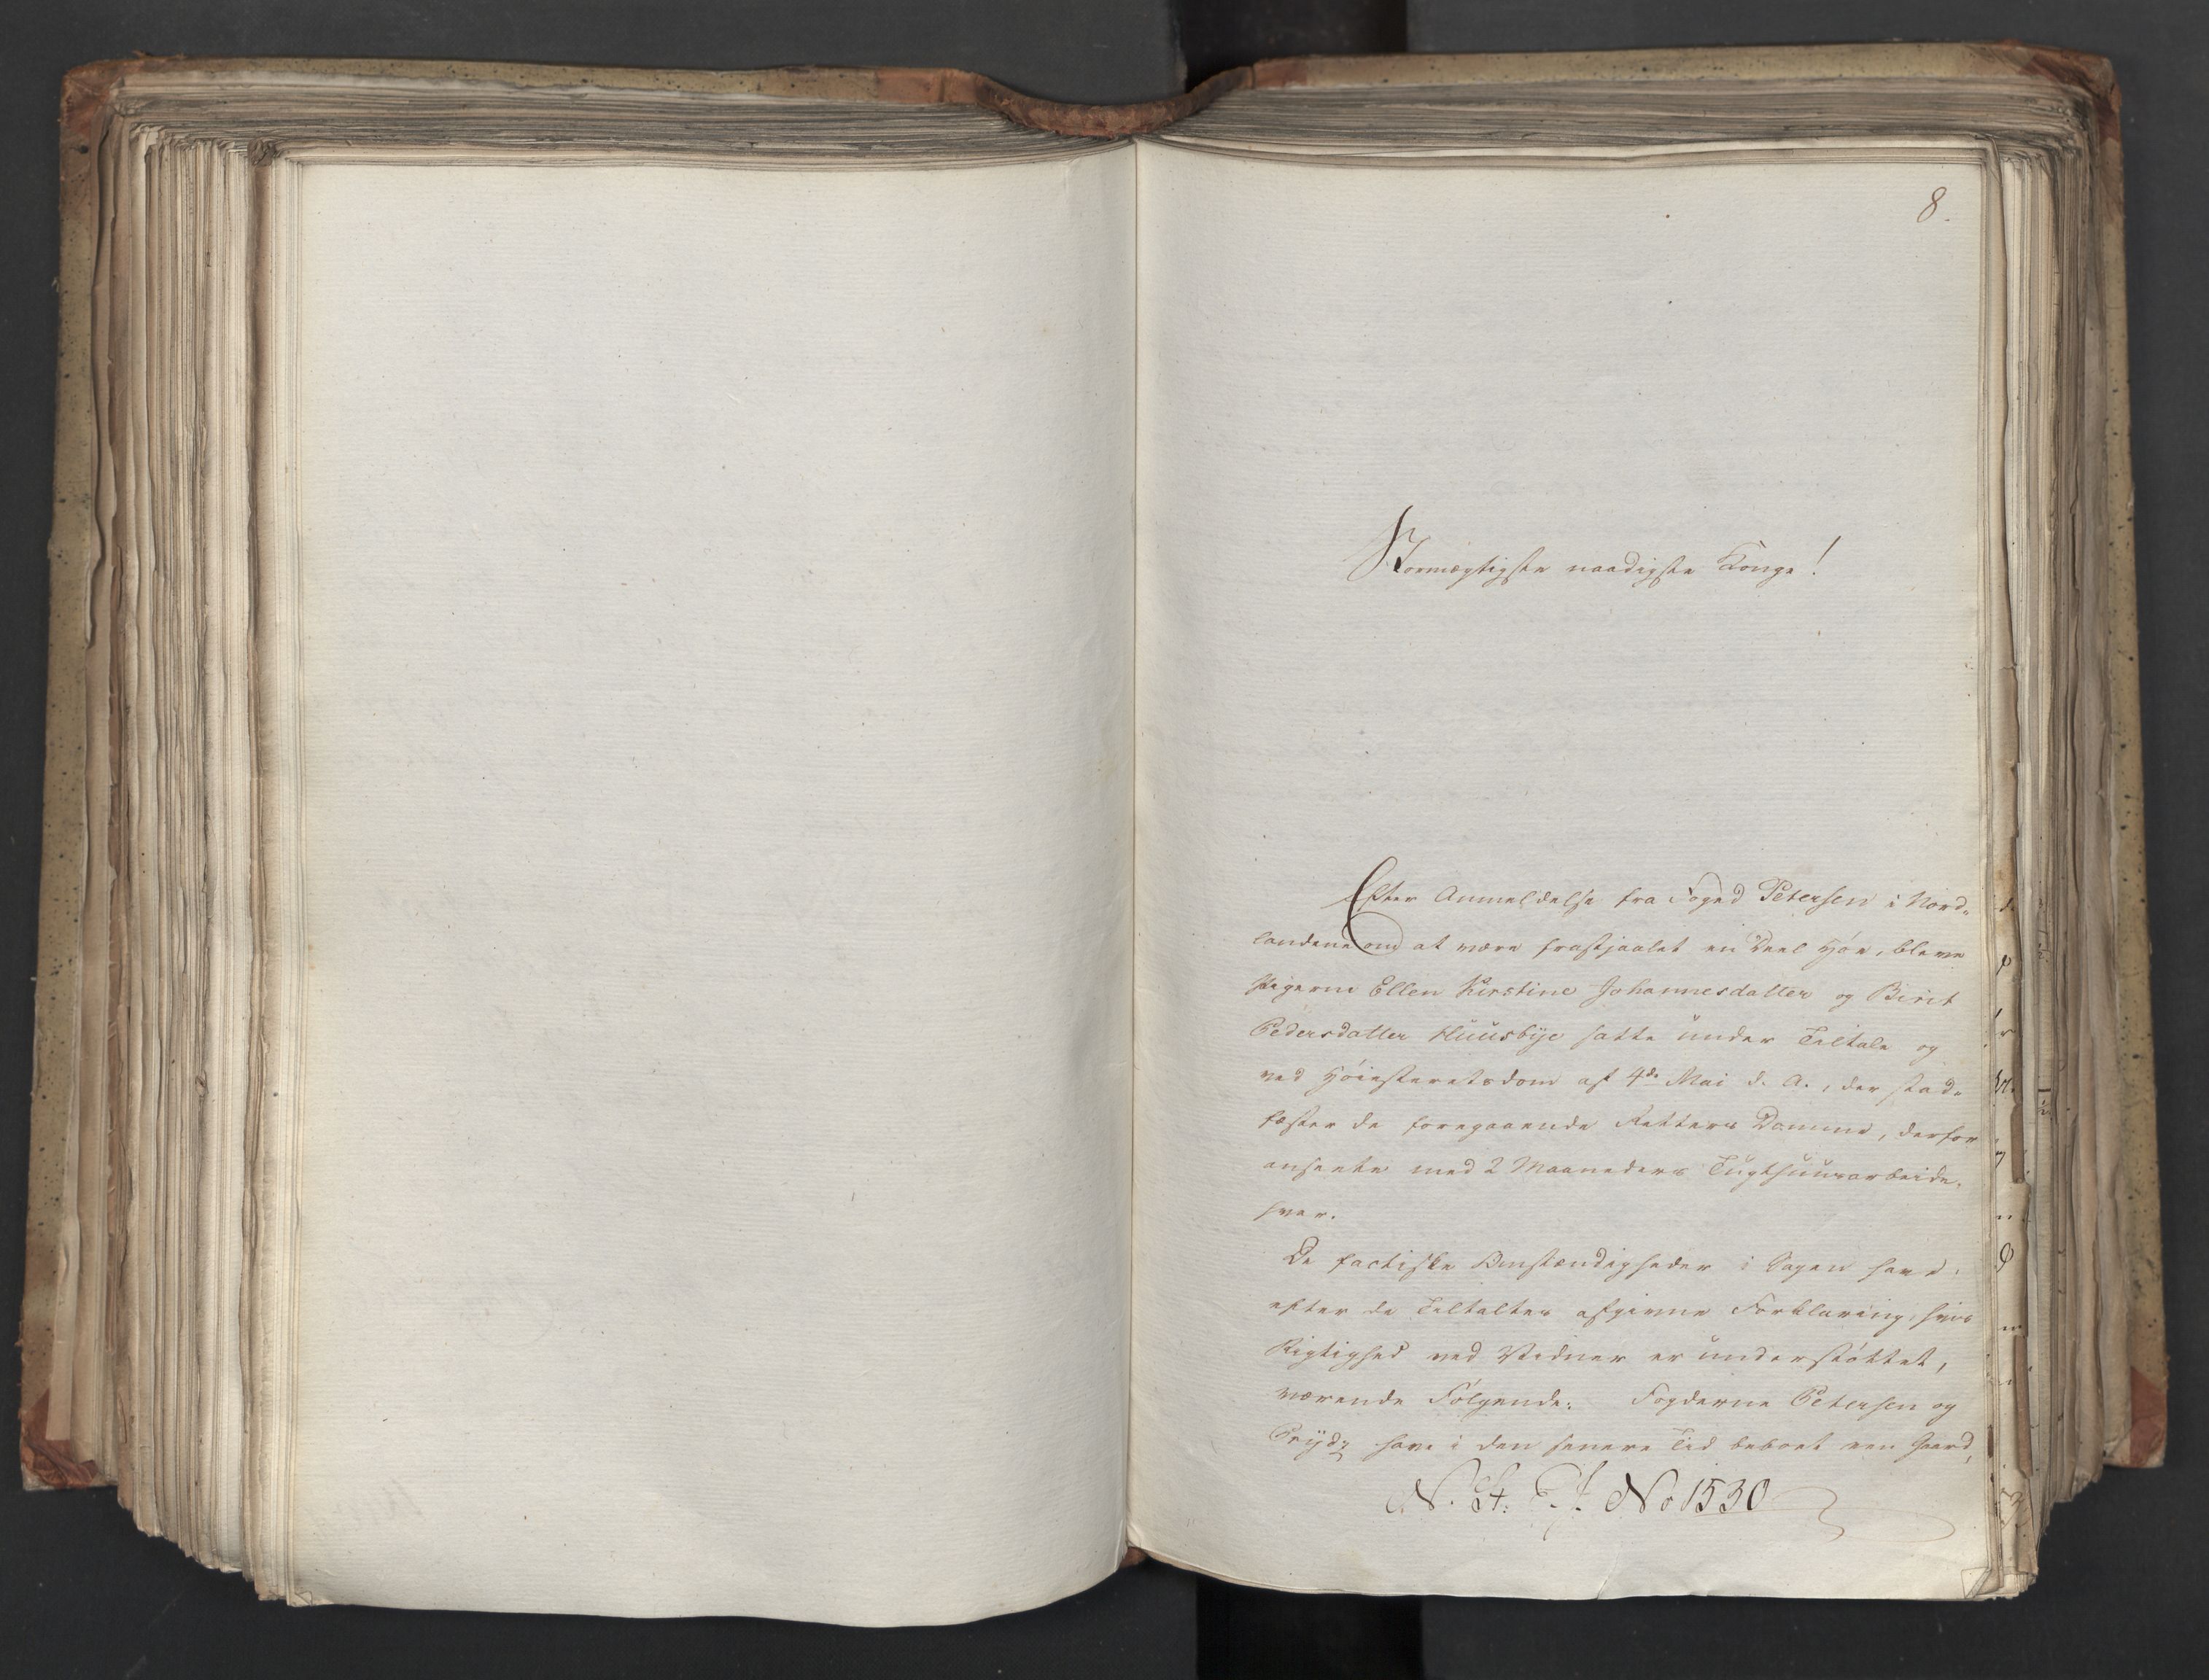 8.
Stormægtigste naadigste Konge!
Efter Anmeldelse fra Foged Petersen i Nord-
landene om at være frastjaalet en Deel Høe, bleve
Pigerne Ellen Kirstine Johannesdatter og Birit
Pedersdatter Huusbye satte under Tiltale og
ved Høiesteretsdom af 4de Mai d. A., der stad-
fæster de foregaaende Retters Domme, derfor
anseete med 2 Maaneders Tugthuusarbeide
hver.
De factiske Omstændigheder i Sagen have
efter de Tiltaltes afgivne Forklaring, hvis
Rigtighed ved Vidner er understøttet,
værende Følgende: Fogderne Petersen og
have i den senere Tid beboet een Gaard,
N. St. E. J. No 1530